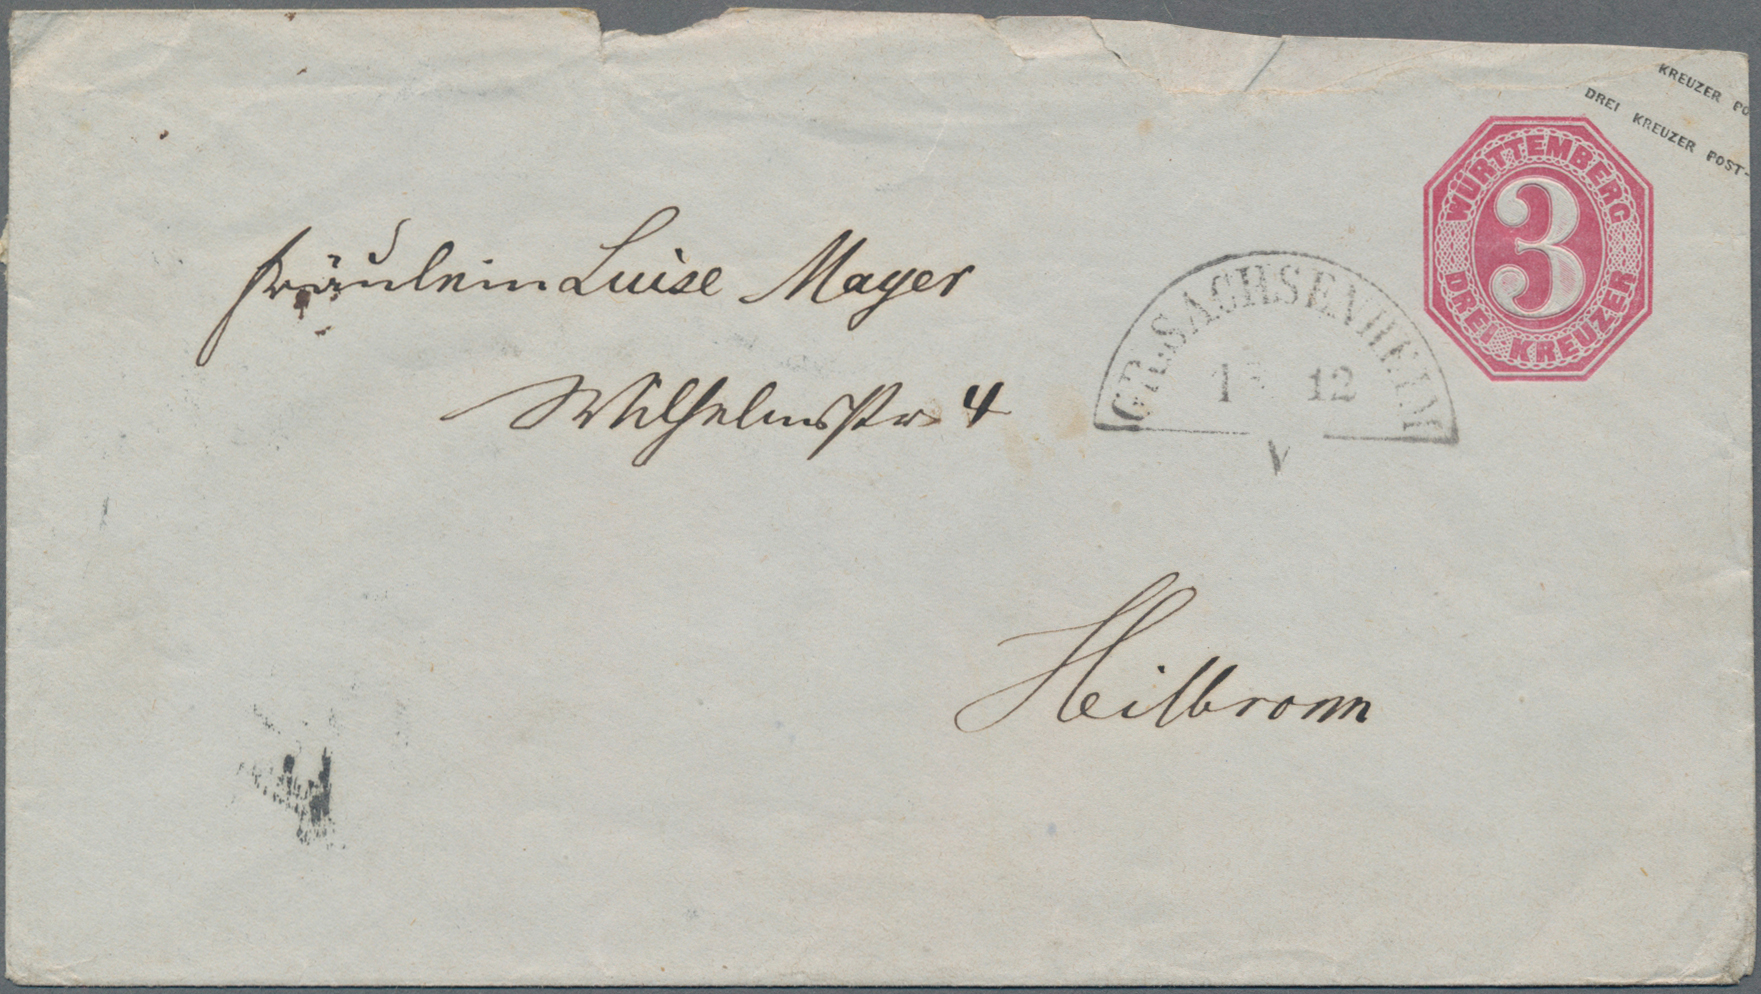 KREUZER PO
DREI KREUZER POST-
WÜRTTEMBERG
3
DREI KREUZER
Fräulein Luise Mayer
GR. SACHSENHEIM
12
V
Wilhelmsstr 4
Heilbronn